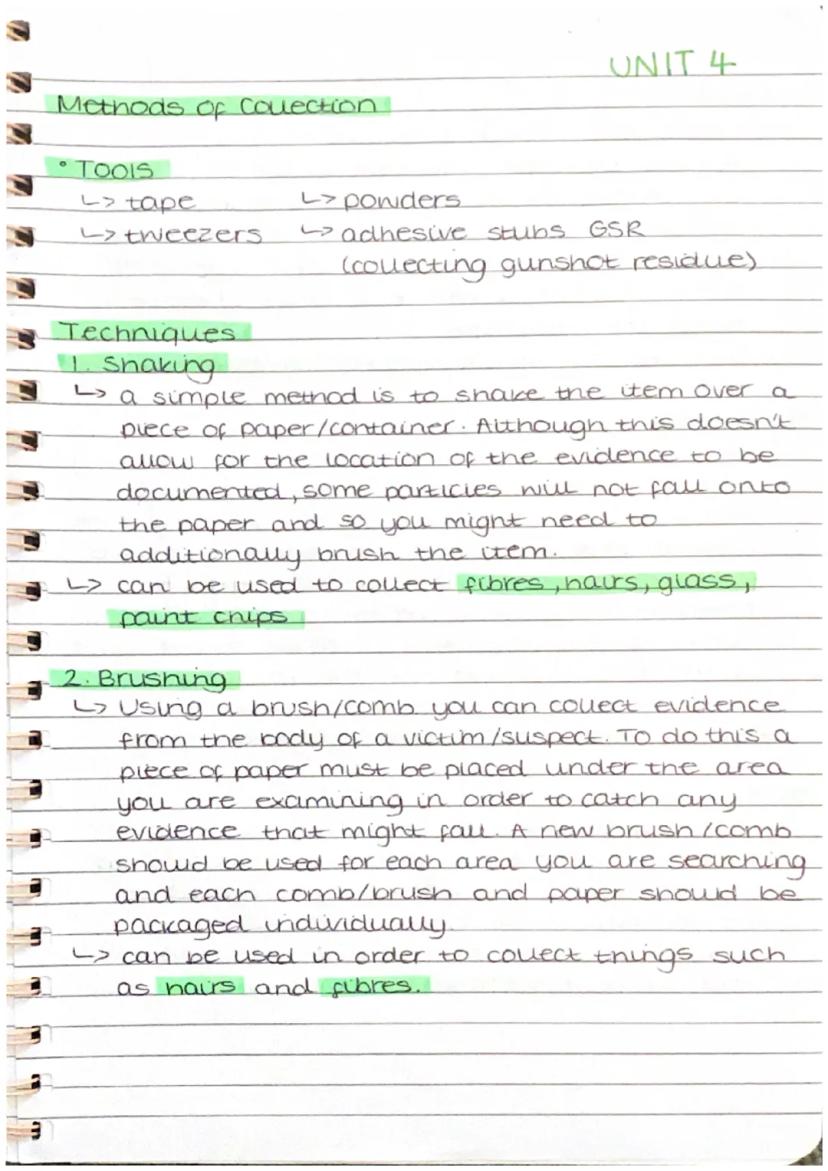 UNIT 4
Methods of Collection
° Tools
↳ tape ↳ powders
↳ tweezers ↳ adhesive stubs GSR
(collecting gunshot residue)
Techniques
1. Shaking
↳ a simple method is to shake the item over a
piece of paper/container. Although this doesn't
allow for the location of the evidence to be
documented, some particles will not fall onto
the paper and so you might need to
additionally brush the item.
↳ can be used to collect fibres, hairs, glass,
paint chips
2. Brushing
↳ Using a brush/comb you can collect evidence
from the body of a victim/suspect. To do this a
piece of paper must be placed under the area
you are examining in order to catch any
evidence that might fall. A new brush/comb
should be used for each area you are searching
and each comb/brush and paper should be
packaged individually.
↳ can be used in order to collect things such
as hairs and fibres.